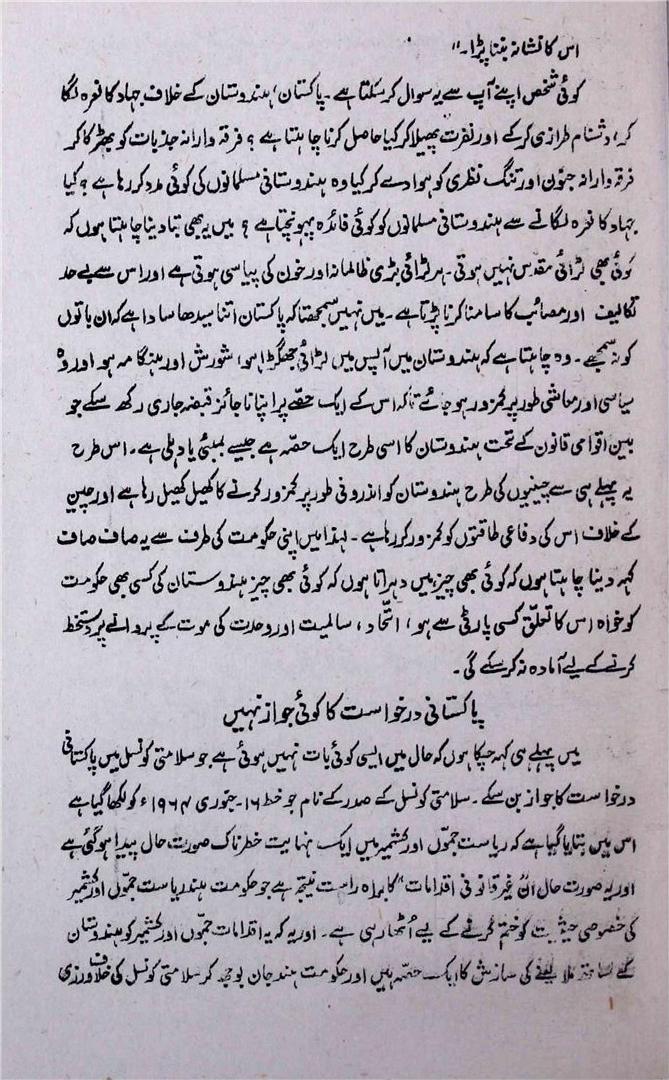 اس کا نشانہ بننا پڑا۔"
کوئی شخص اپنے آپ سے یہ سوال کر سکتا ہے۔ پاکستان، ہندوستان کے خلاف جہاد کا نعرہ لگا
کر، دشنام طرازی کر کے اور نفرت پھیلا کر کیا حاصل کرنا چاہتا ہے؟ فرقہ وارانہ جذبات کو بھڑکا کر
فرقہ وارانہ جنون اور تنگ نظری کو ہوا دے کر کیا وہ ہندوستانی مسلمانوں کی کوئی مدد کر رہا ہے؟ کیا
جہاد کا نعرہ لگانے سے ہندوستانی مسلمانوں کو کوئی فائدہ پہونچتا ہے؟ میں یہ بھی بتا دینا چاہتا ہوں کہ
کوئی بھی لڑائی مقدس نہیں ہوتی۔ ہر لڑائی بڑی ظالمانہ اور خون کی پیاسی ہوتی ہے اور اس سے بے حد
تکالیف اور مصائب کا سامنا کرنا پڑتا ہے۔ میں نہیں سمجھتا کہ پاکستان اتنا سیدھا سادا ہے کہ ان باتوں
کو نہ سمجھے۔ وہ چاہتا ہے کہ ہندوستان میں آپس میں لڑائی جھگڑا ہو، شورش اور ہنگامہ ہو اور وہ
سیاسی اور معاشی طور پر کمزور ہو جائے تاکہ اس کے ایک حصّے پر اپنا ناجائز قبضہ جاری رکھ سکے جو
بین اقوامی قانون کے تحت ہندوستان کا اسی طرح ایک حصّہ ہے جیسے بمبئی یا دہلی ہے۔ اس طرح
یہ پہلے ہی سے چینیوں کی طرح ہندوستان کو اندرونی طور پر کمزور کرنے کا کھیل کھیل رہا ہے اور چین
کے خلاف اس کی دفاعی طاقتوں کو کمزور کر رہا ہے۔ لہٰذا میں اپنی حکومت کی طرف سے یہ صاف صاف
کہہ دینا چاہتا ہوں کہ کوئی بھی چیز میں دہراتا ہوں کہ کوئی بھی چیز ہندوستان کی کسی بھی حکومت
کو خواہ اس کا تعلق کسی پارٹی سے ہو، اتّحاد، سالمیت اور وحدت کی موت کے پروانے پر دستخط
کرنے کے لیے آمادہ نہ کر سکے گی۔
پاکستانی درخواست کا کوئی جواز نہیں
میں پہلے ہی کہہ چکا ہوں کہ حال میں ایسی کوئی بات نہیں ہوئی ہے جو سلامتی کونسل میں پاکستانی
درخواست کا جواز بن سکے۔ سلامتی کونسل کے صدر کے نام جو خط ۱۶۔ جنوری ۱۹۶۴ء کو لکھا گیا ہے
اس میں بتایا گیا ہے کہ ریاست جمّوں اور کشمیر میں ایک نہایت خطرناک صورت حال پیدا ہو گئی ہے
اور یہ صورت حال ان "غیر قانونی اقدامات" کا براہ راست نتیجہ ہے جو حکومت ہند ریاست جمّوں اور کشمیر
کی خصوصی حیثیت کو ختم کرنے کے لیے اُٹھا رہی ہے۔ اور یہ کہ یہ اقدامات جمّوں اور کشمیر کو ہندوستان
کے ساتھ ملا لینے کی سازش کا ایک حصّہ ہیں اور حکومت ہند جان بوجھ کر سلامتی کونسل کی خلاف ورزی